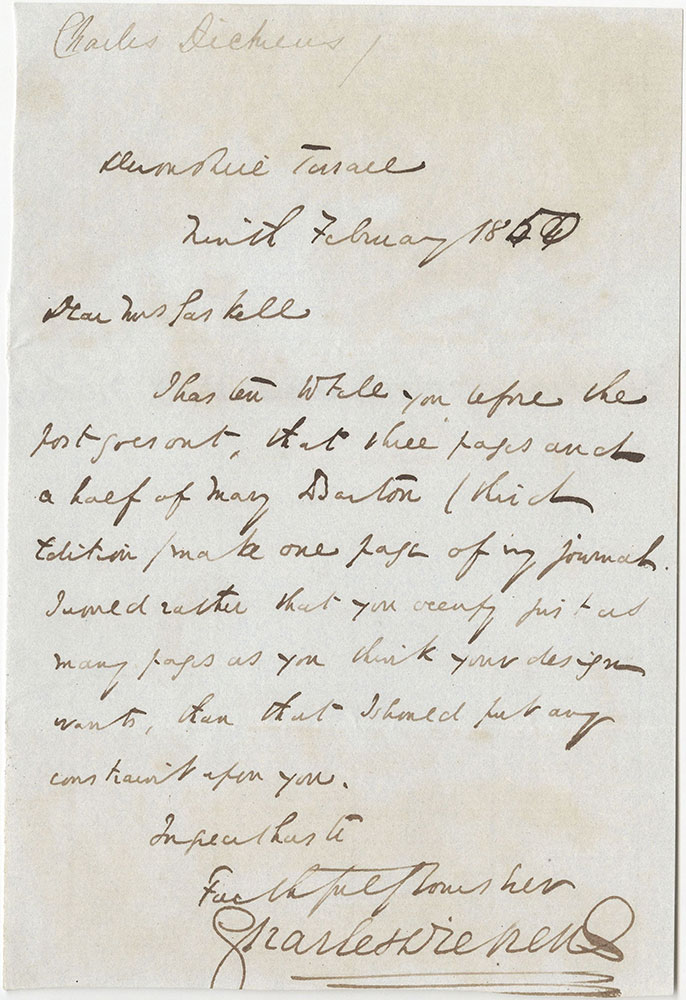 Charles Dickens
Devonshire Terrace
Ninth February 1850
Dear Mrs Gaskell
I hasten to tell you before the
post goes out, that three pages and
a half of Mary Barton (third
Edition) make one page of my journal.
I would rather that you occupy just as
many pages as you think your design
wants, than that I should put any
constraint upon you.
In great haste
Faithfully Yours ever
Charles Dickens